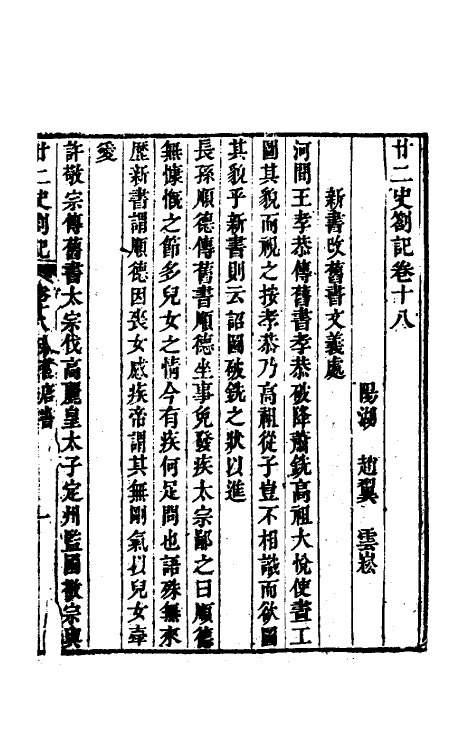 廿二史劄記卷十八
陽湖 趙翼 雲崧
新書改舊書文義處
河間王孝恭傳舊書孝恭破降蕭銑高祖大悅使畫工
圖其貌而視之按孝恭乃高祖從子豈不相識而欲圖
其貌乎新書則云詔圖破銑之狀以進
長孫順德傳舊書順德坐事免發疾太宗鄙之曰順德
無慷慨之節多兒女之情今有疾何足問也語殊無來
歷新書謂順德因喪女感疾帝謂其無剛氣以兒女牽
愛
許敬宗傳舊書太宗伐高麗皇太子定州監國敬宗與
廿二史劄記 卷十八 一